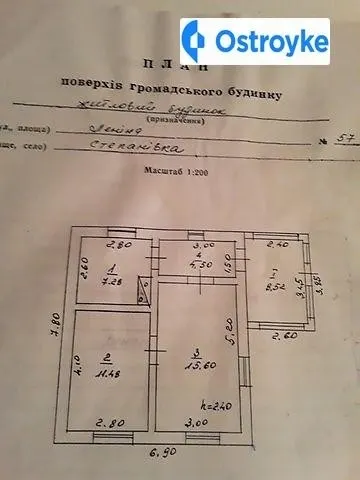 Ostroyke
ПЛАН
поверхів громадського будинку
житловий будинок
(призначення)
площа) Леніна № 57
село) Степанівка
Масштаб 1:200
2,80
3,00
2,40
2,60
1
7.28
4
4,50
1,50
I
8,52
3,45
3,95
7.80
2,60
5,20
4,10
2
11.48
3
15,60
h=2,40
2,80
3,00
6,90